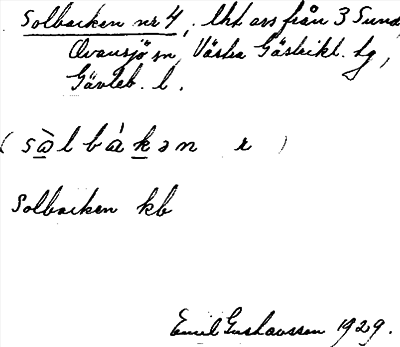 Solbacken nr 4, lht avs från 3 Sund,
Ovansjö sn, Västra Gästrikl. tg,
Gävleb. l.
(sàlbákən r)
Solbacken kb
Emil Gustavsson 1929.